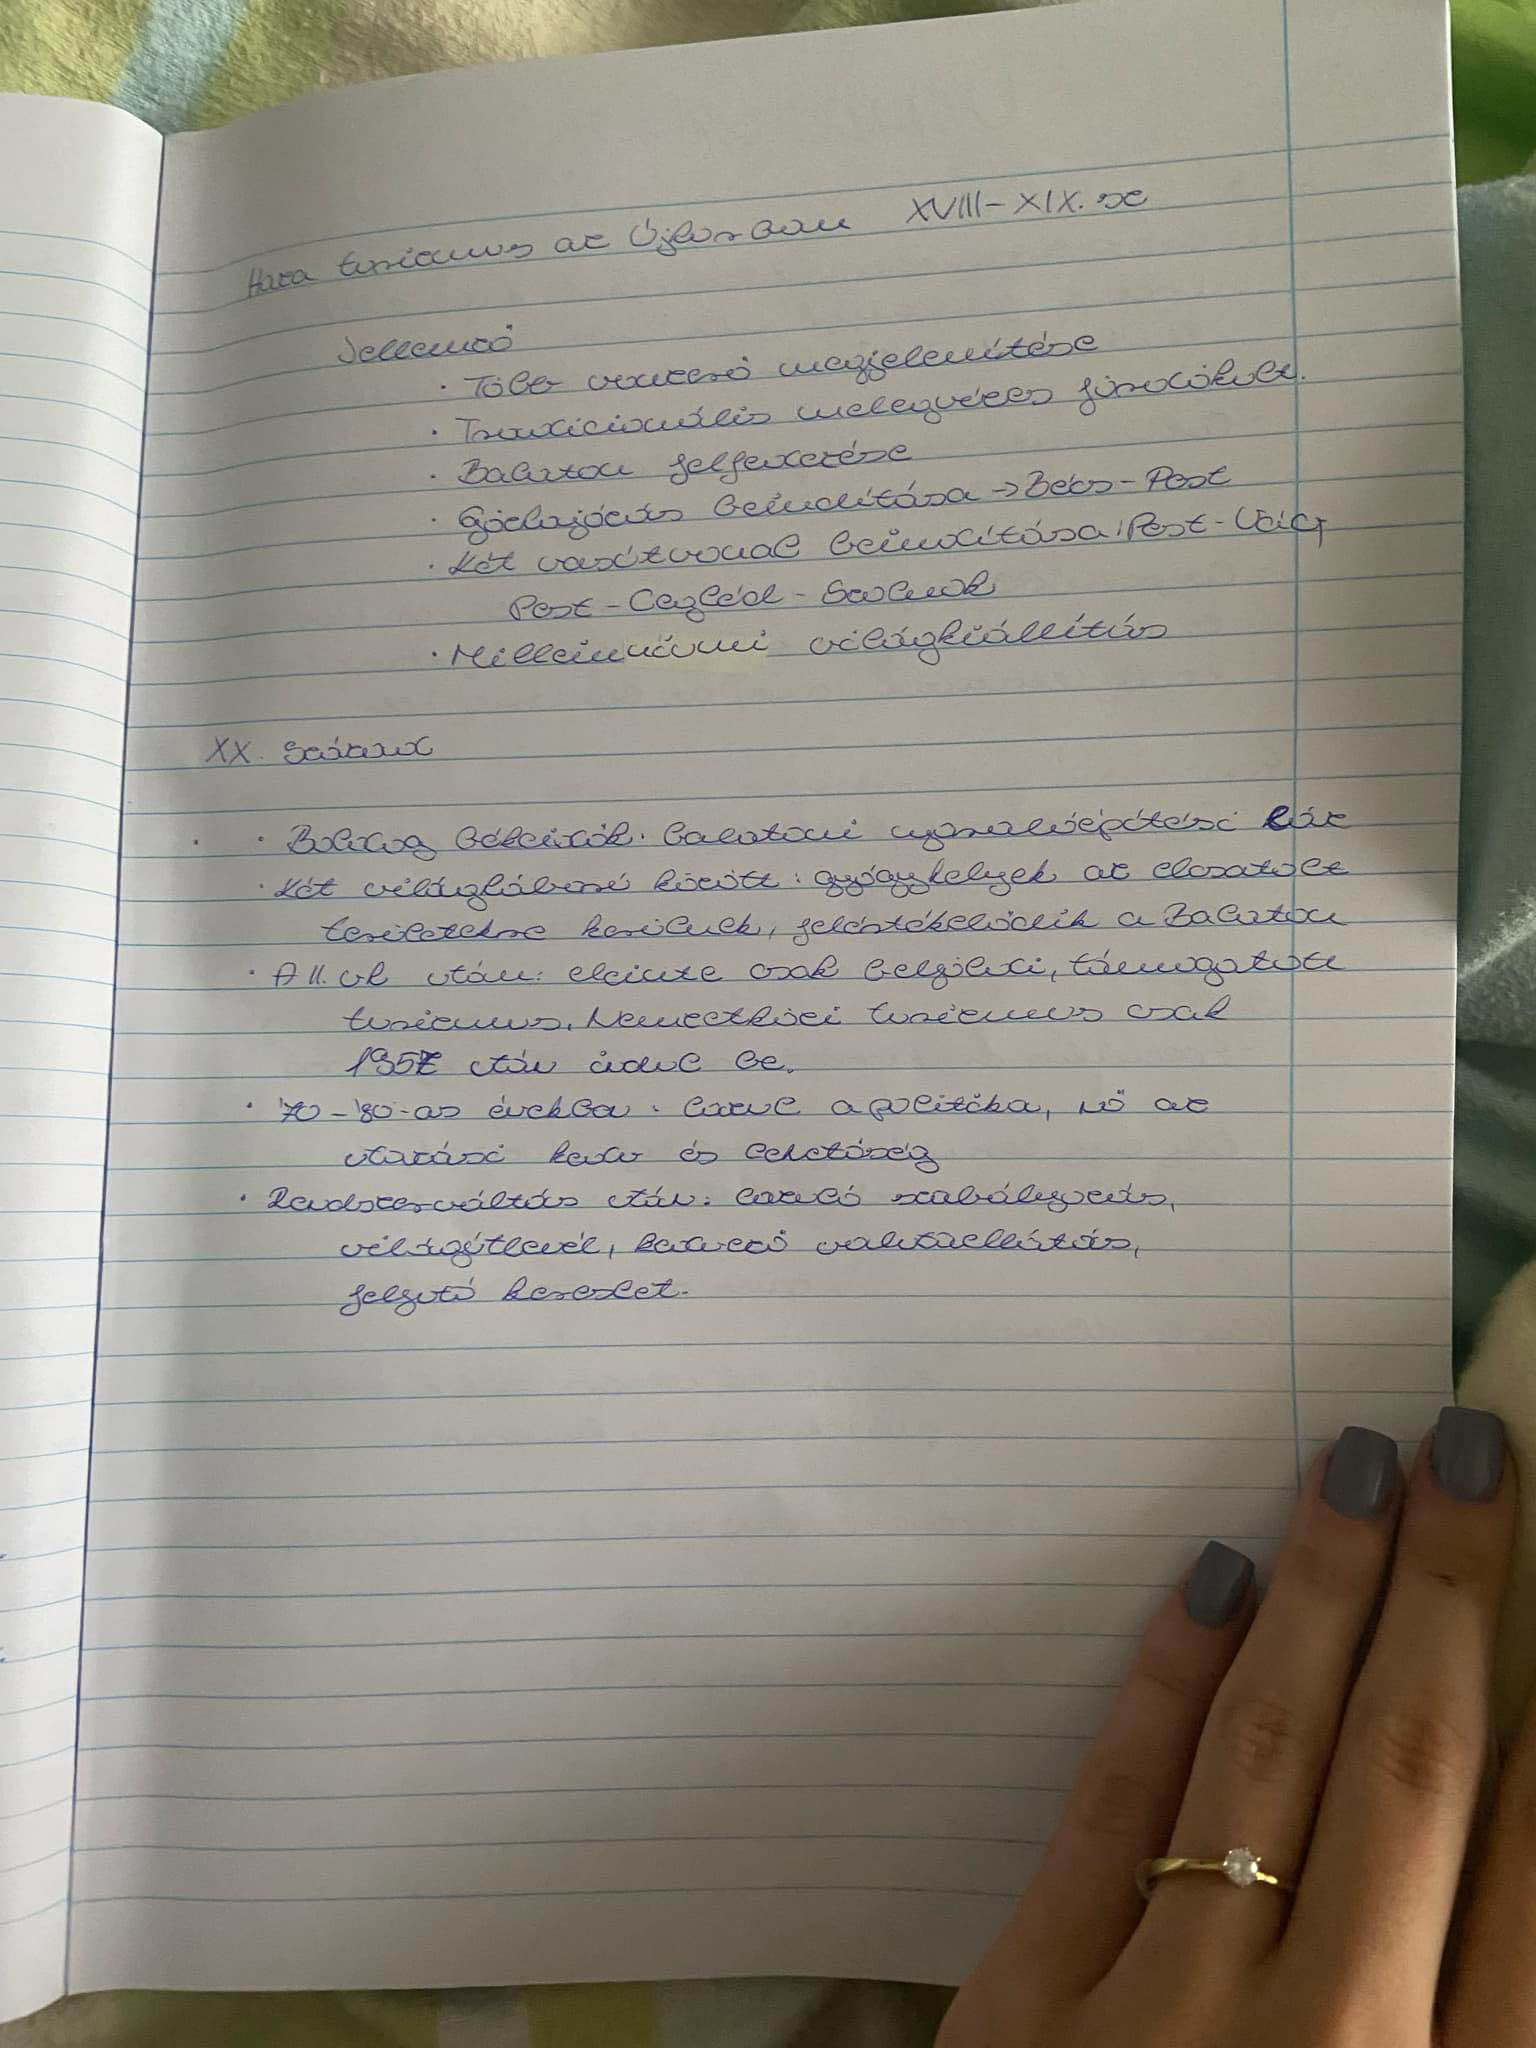 Hazai turizmus az Újkorban XVIII-XIX. sz
Jellemző
· Több vonzerő megjelenítése
· Tradicionális melegvizes fürdőkult.
· Balaton felfedezése
· Gőzhajózás beindítása → Bécs-Pest
· Két vasútvonal beindítása: Pest-Vác,
Pest-Cegléd-Szolnok
· Milleinniumi világkiállítás
XX. Század
· Boldog békeidők: balatoni nyaralóépítési láz
· Két világháború között: gyógyhelyek az elcsatolt
területekre kerülnek, felértékelődik a Balaton
· A II. vh után: eleinte csak belföldi, támogatott
turizmus. Nemzetközi turizmus csak
1957 után indul be.
· '70-'80-as évekbe: lazul a politika, nő az
utazási kedv és lehetőség
· Rendszerváltás után: lazuló szabályozás,
világútlevél, kedvező valutaellátás,
felfutó kereslet.